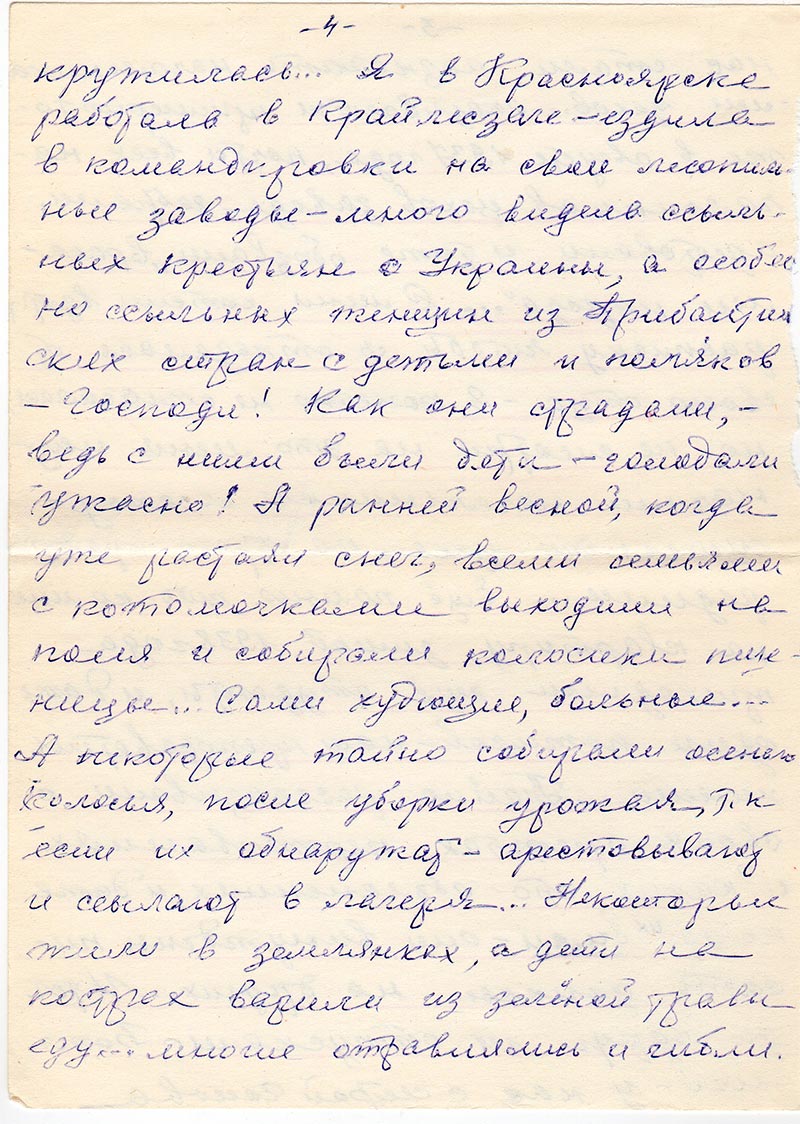 -4-
кружилась... Я в Красноярске
работала в Крайлесзаге - ездила
в командировки на свои лесопиль-
ные заводы - много видела ссыль-
ных крестьян с Украины, а особен
но ссыльных женщин из Прибалтий
ских стран с детьми и поляков
- Господи! Как они страдали, -
ведь с ними были дети - голодали
ужасно! А ранней весной, когда
уже растаял снег, всеми семьями
с котомочками выходили на
поля и собирали колосики пше-
ницы... Сами худющие, больные...
А некоторые тайно собирали осенью
колосья, после уборки урожая, т.к
если их обнаружат - арестовывают
и ссылают в лагеря... Некоторые
жили в землянках, а дети на
кострах варили из зелёной травы
еду... многие отравлялись и гибли.